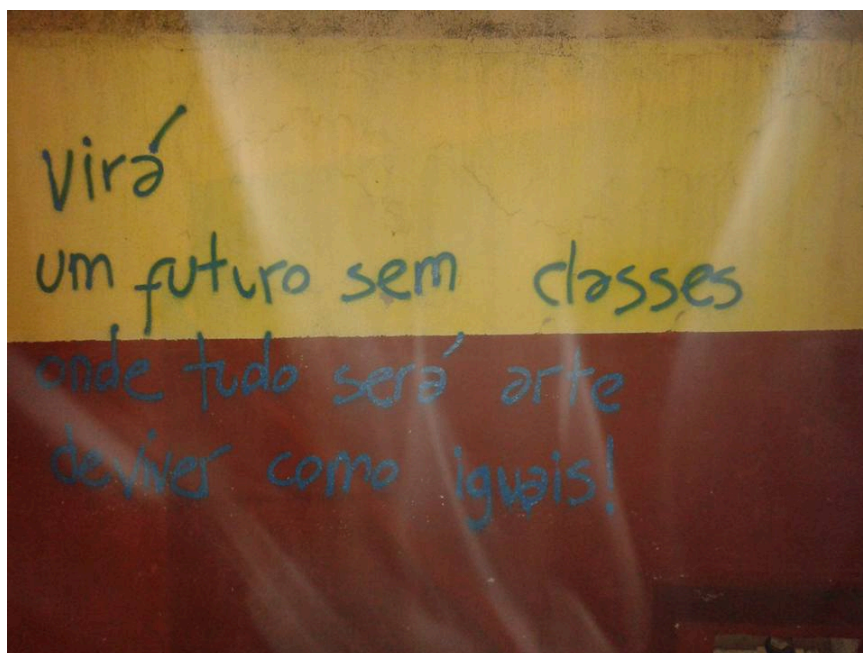 Virá
um futuro sem classes
onde tudo será arte
de viver como iguais!